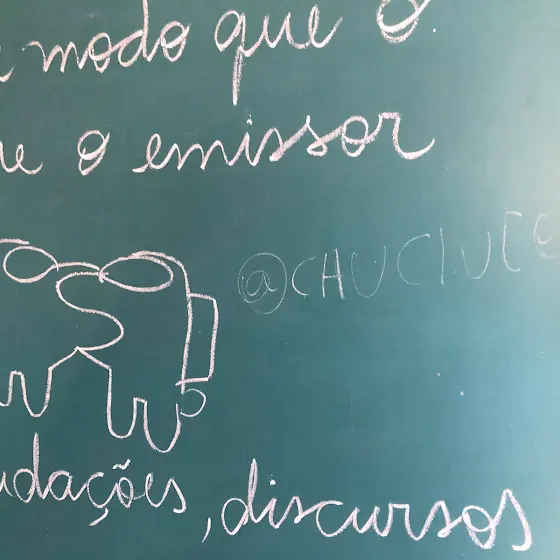 modo que o
o emissor
@CHUCIUTE
discursos